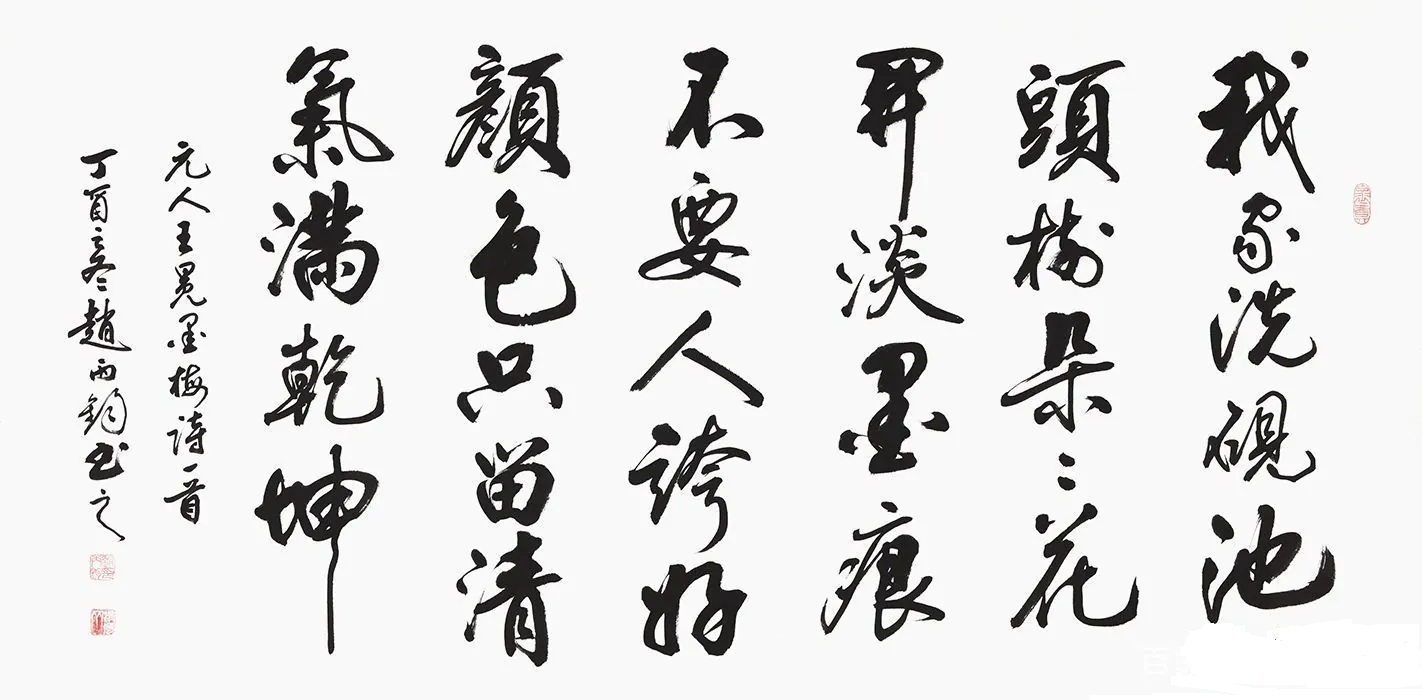 我家洗硯池
頭樹朵〻花
開淡墨痕
不要人誇好
顏色只留清
氣滿乾坤
元人王冕墨梅詩一首
丁酉之冬趙雨鈞书之